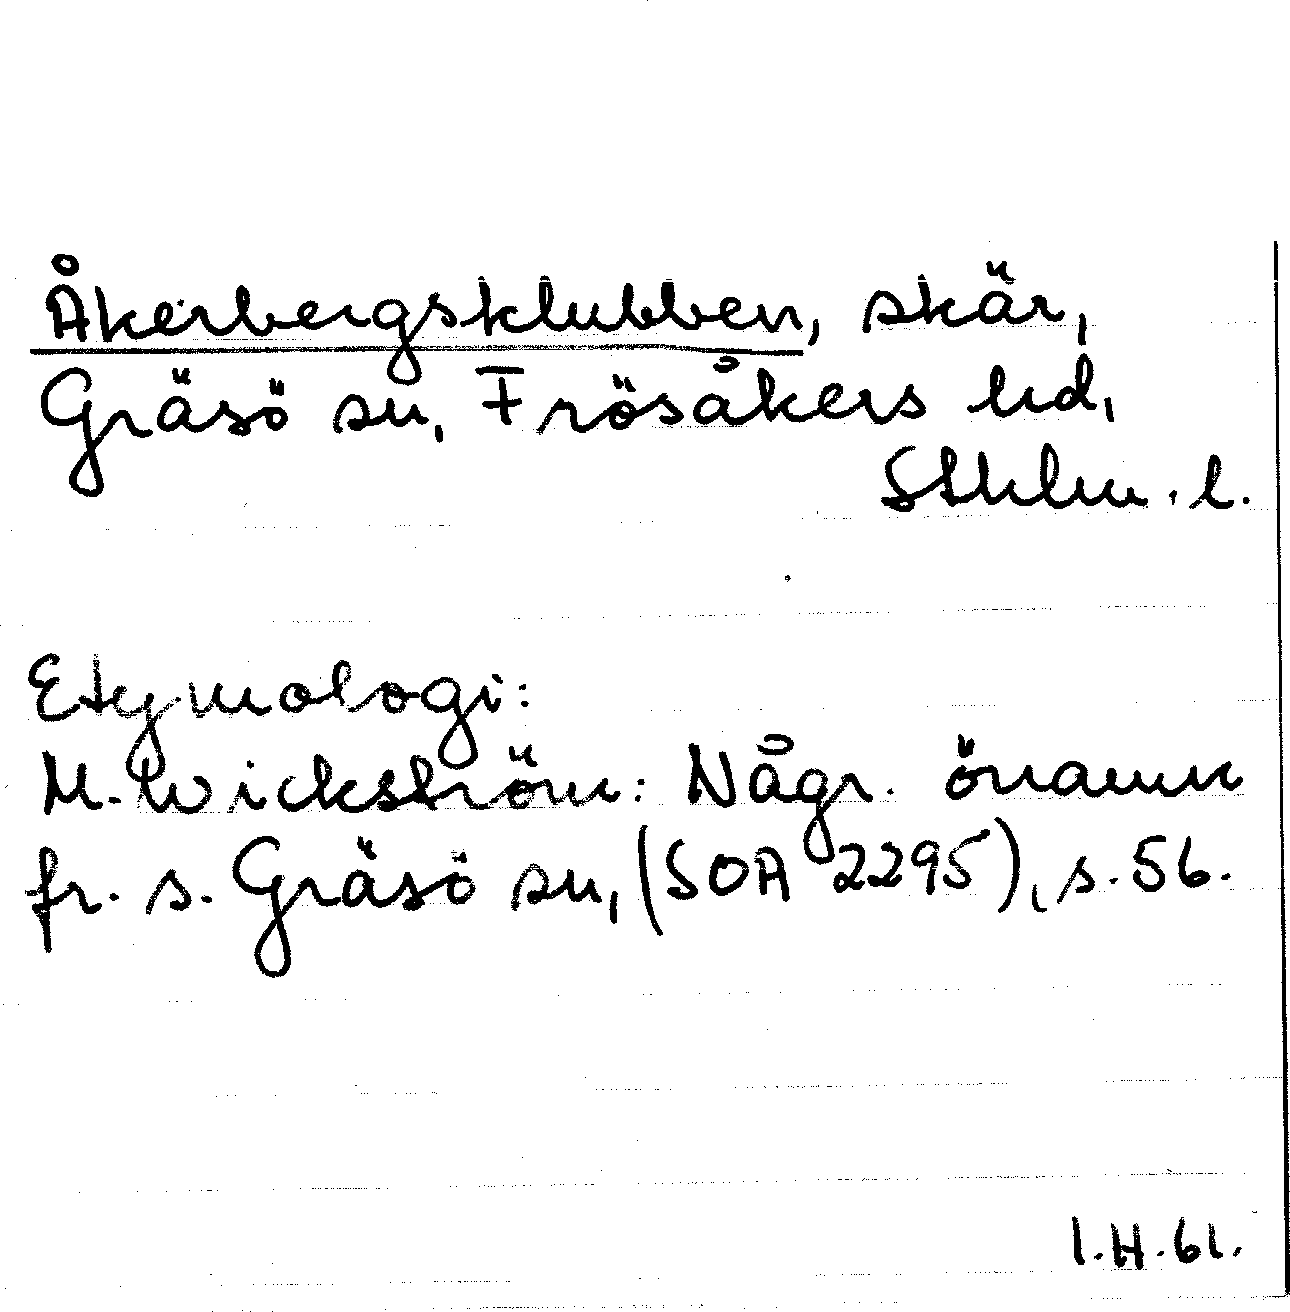 Åkerbergsklubben, skär,
Gräsö sn, Frösåkers hd,
Sthlm. l.
Etymologi:
M. Wickström: Någr. önamn
fr. s. Gräsö sn, (SOA 2295), s. 56.
I.H. 61.